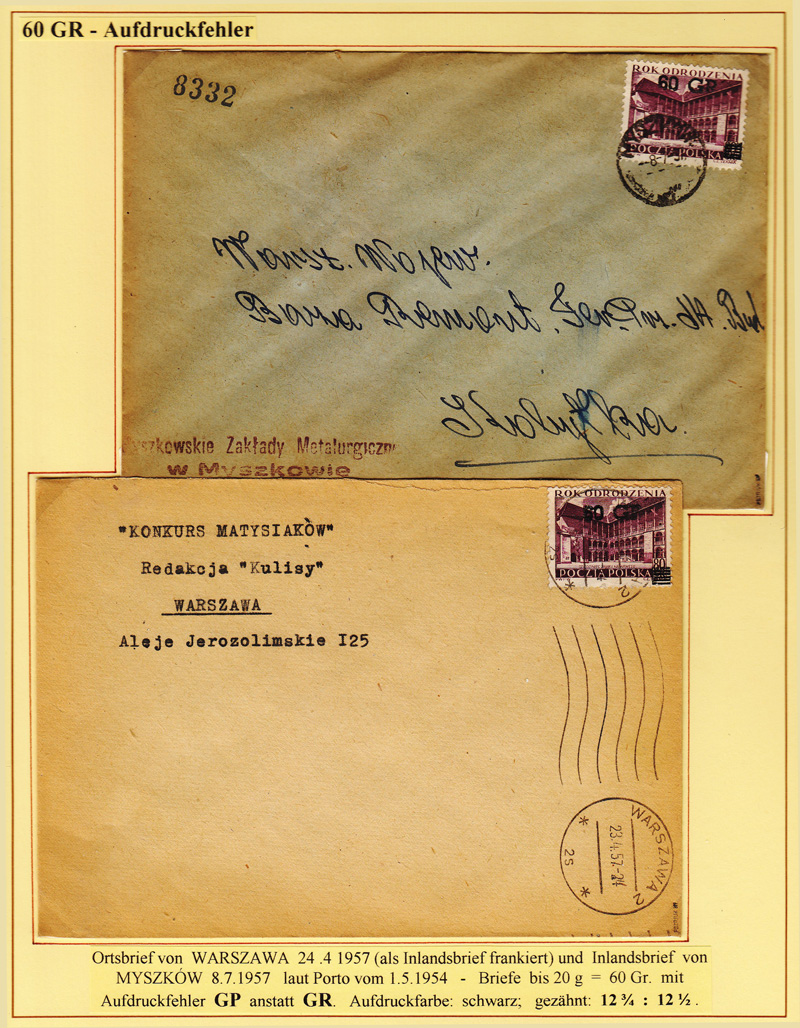 60 GR - Aufdruckfehler
8332
ROK ODRODZENIA
60 GP
POCZTA POLSKA
MYSZKÓW
-8-7-57
Warsz. Wojew.
Baza Remont. Ter. Pm. St. Bud
Kobyłka.
yszkowskie Zakłady Metalurgiczn
w Myszkowie
ROK ODRODZENIA
60 GP
80
POCZTA POLSKA
"KONKURS MATYSIAKÓW"
Redakcja "Kulisy"
WARSZAWA
Aleje Jerozolimskie I25
WARSZAWA 2
23.4.57-24
2S
Ortsbrief von WARSZAWA 24 .4 1957 (als Inlandsbrief frankiert) und Inlandsbrief von
MYSZKÓW 8.7.1957 laut Porto vom 1.5.1954 - Briefe bis 20 g = 60 Gr. mit
Aufdruckfehler GP anstatt GR. Aufdruckfarbe: schwarz; gezähnt: 12 ¾ : 12 ½ .